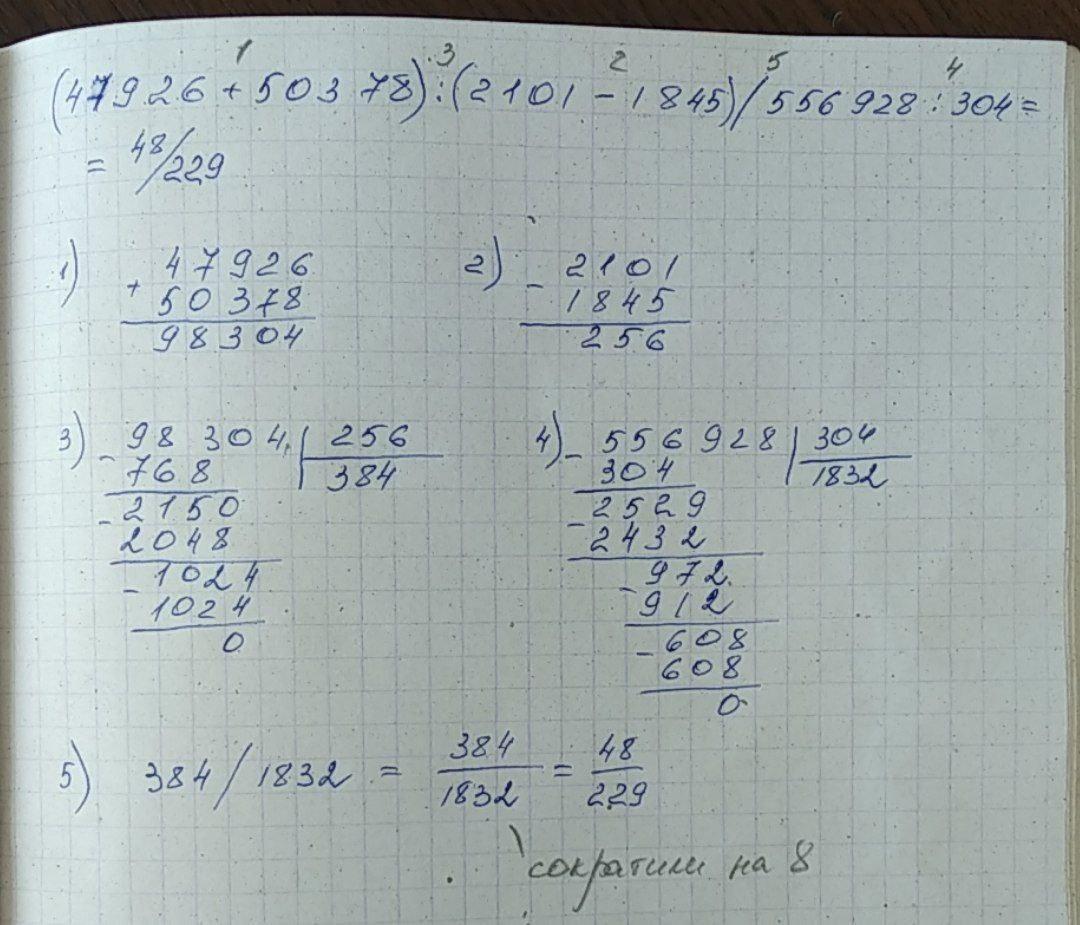 1 3 2 5 4
(47926 + 50378) : (2101 - 1845) / 556928 : 304 =
= 48/229
1) + 47926
50378
98304
2) - 2101
1845
256
3) - 98304 | 256
768 384
- 2150
2048
- 1024
1024
0
4) - 556928 | 304
304 1832
- 2529
2432
- 972
912
- 608
608
0
5) 384 / 1832 = 384/1832 = 48/229
сократили на 8